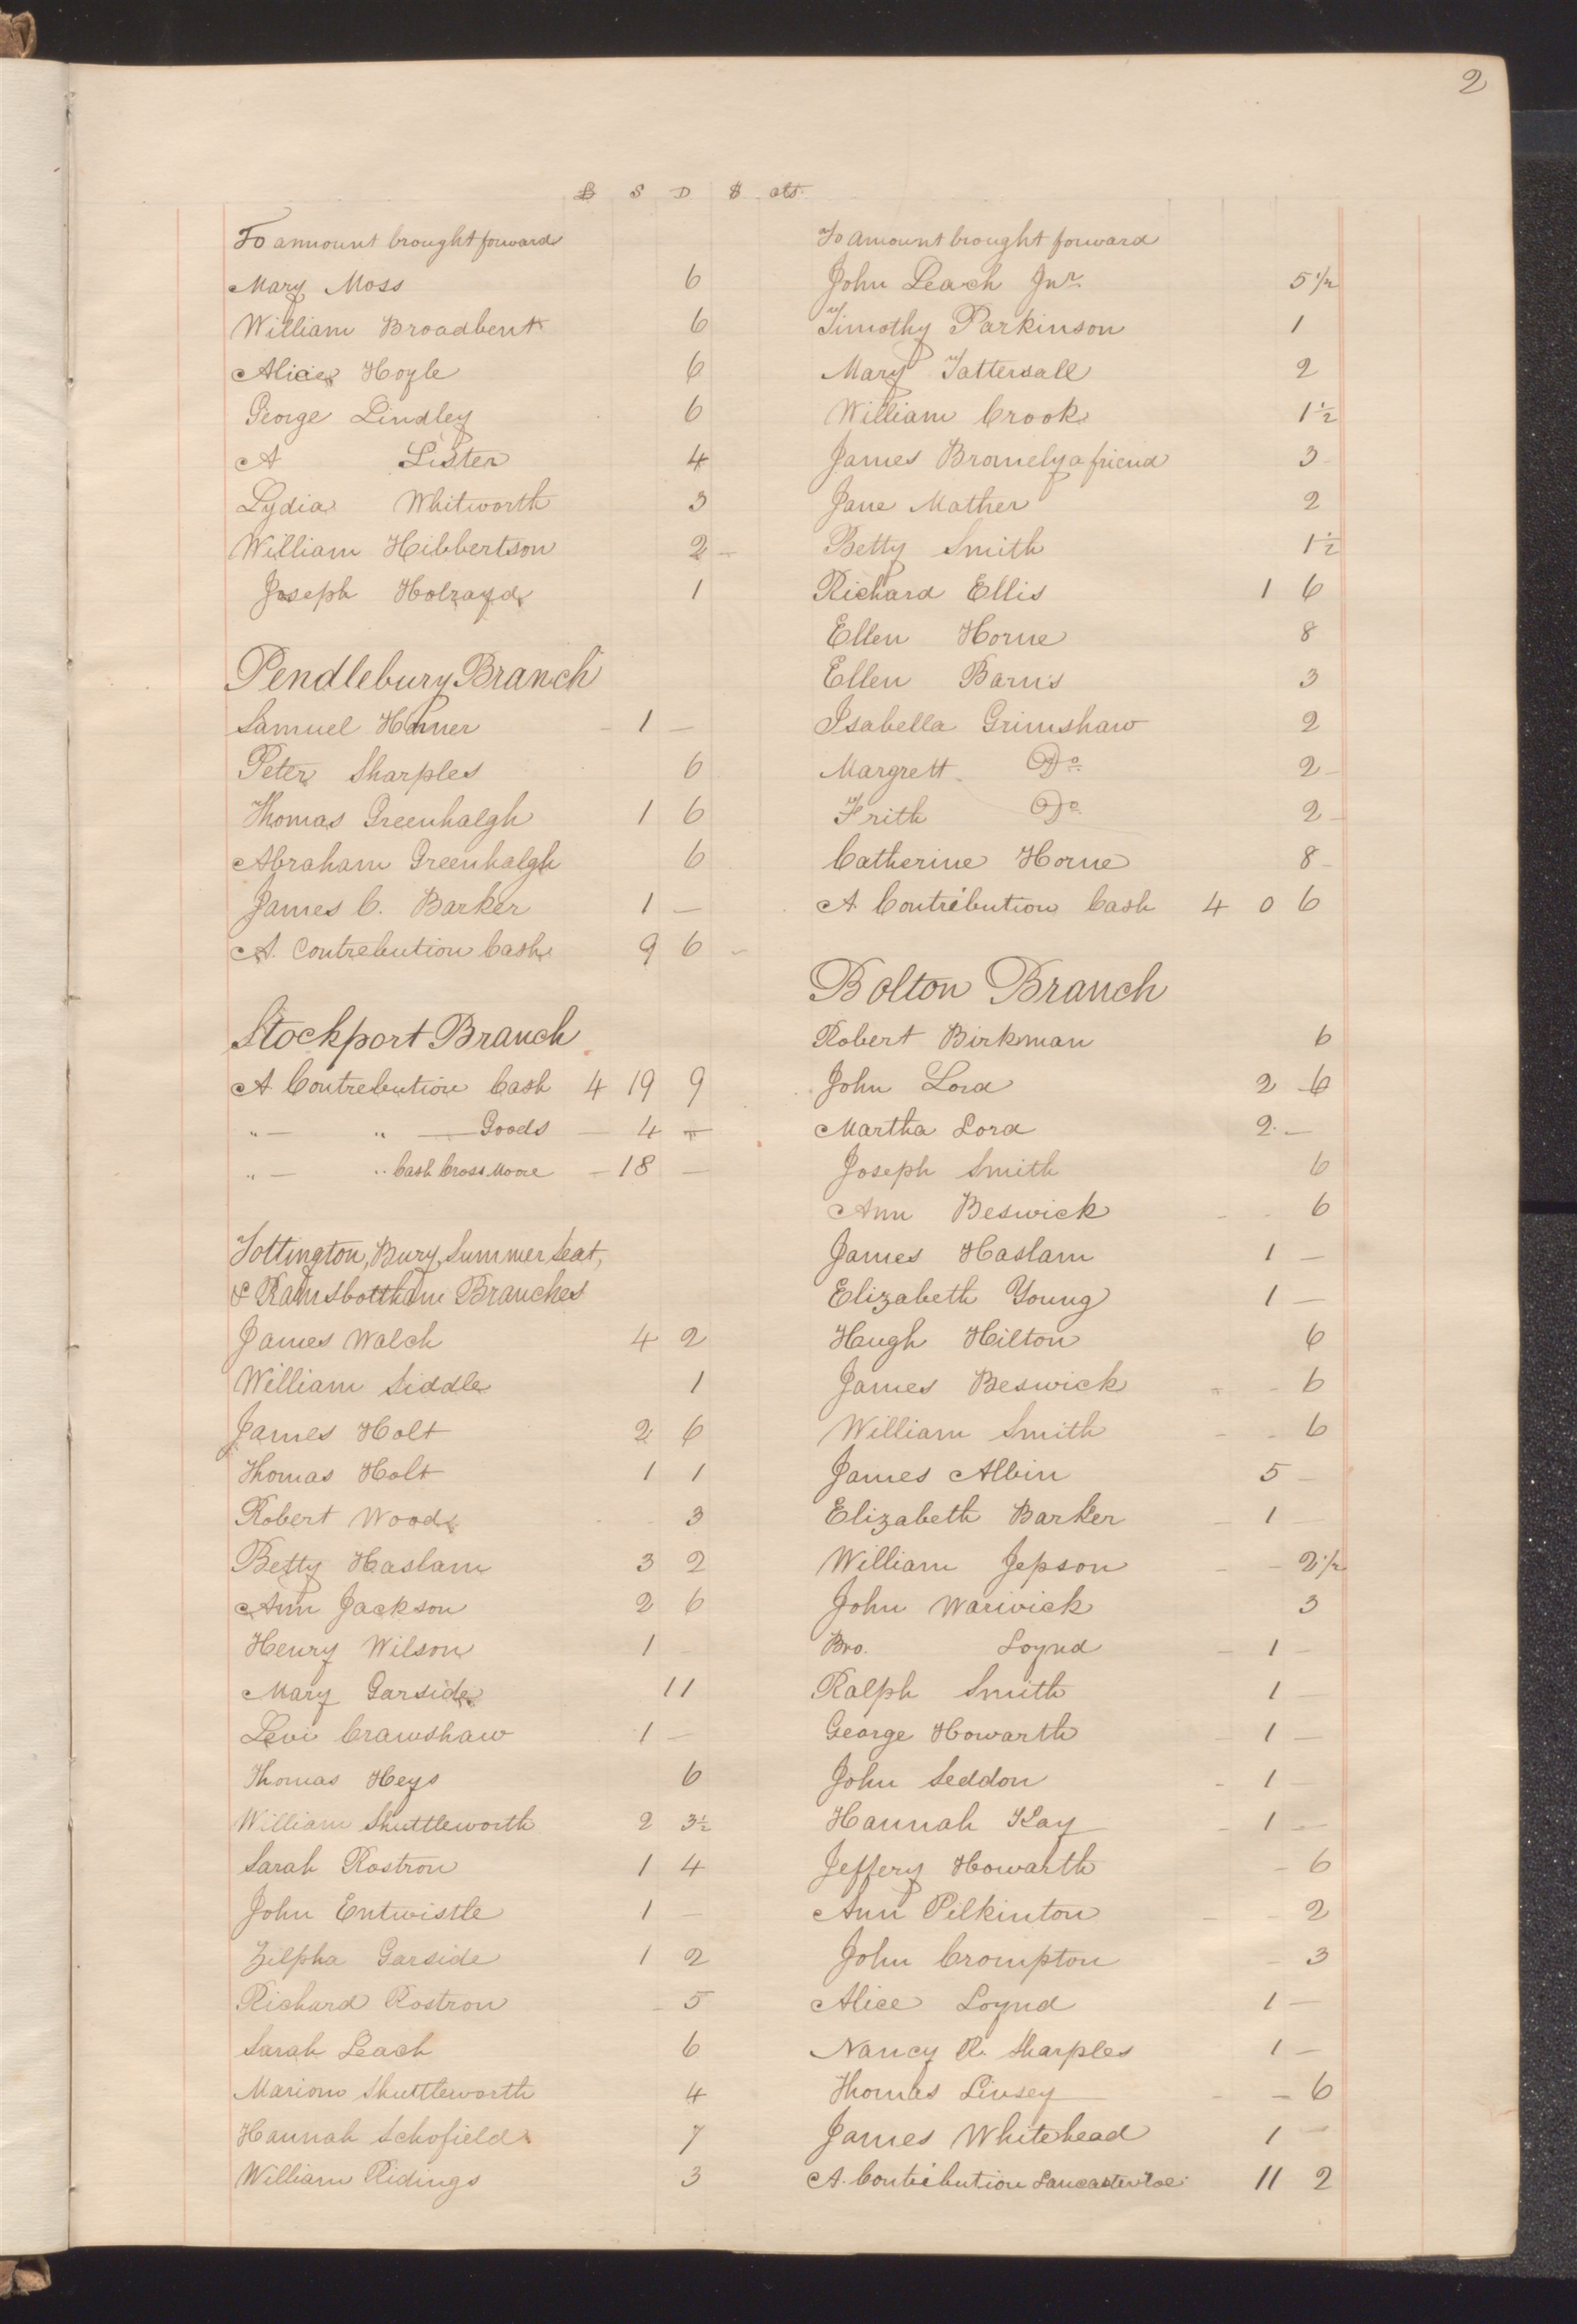 2
£ S D $ cts.
To ammount brought forward
Mary Moss 6
William Broadbent 6
Alice Hoyle 6
George Lindley 6
A Lister 4
Lydia Whitworth 3
William Hibbertson 2 –
Joseph Holrayd 1
Pendlebury Branch
Samuel Hamer – 1 –
Peter Sharples 6
Thomas Greenhalgh 1 6
Abraham Greenhalgh 6
James C. Barker 1 –
A. Contrebution Cash 9 6 –
Stockport Branch
A Contrebution Cash 4 19 9
" – " – Goods – 4 –
" – " Cash Cross Moore – 18 –
Tottington, Bury, Summer Seat,
& Ramsbotthom Branches
James Walch 4 2
William Siddle 1
James Holt 2 6
Thomas Holt 1 1
Robert Wood 3
Betty Haslam 3 2
Ann Jackson 2 6
Henry Wilson 1 –
Mary Garside 11
Levi Crawshaw 1 –
Thomas Heys 6
William Shuttleworth 2 3½
Sarah Rostron 1 4
John Entwistle 1 –
Zilpha Garside 1 2
Richard Rostron – 5
Sarah Leach 6
Marion Shuttleworth 4
Hannah Schofield 7
William Ridings 3
To amount brought forward
John Leach Jnr. 5½
Timothy Parkinson 1
Mary Tattersall 2
William Crook 1½
James Bromely a friend 3
Jane Mather 2
Betty Smith 1½
Richard Ellis 1 6
Ellen Horne 8
Ellen Barns 3
Isabella Grimshaw 2
Margrett Do 2 –
Frith Do 2 –
Catherine Horne 8 –
A Contribution Cash 4 0 6
Bolton Branch
Robert Birkman 6
John Lord 2 6
Martha Lord 2 –
Joseph Smith 6
Ann Beswick – – 6
James Haslam 1 –
Elizabeth Young 1 –
Hugh Hilton 6
James Beswick – – 6
William Smith – – 6
James Albin 5 –
Elizabeth Barker – 1 –
William Jepson – – 2½
John Warwick 3
Bro. Loynd – 1 –
Ralph Smith 1 –
George Howarth – 1 –
John Seddon – 1 –
Hannah Kay – 1 –
Jeffery Howarth – 6
Ann Pilkinton – – 2
John Crompton – 3
Alice Loynd 1 –
Nancy R. Sharples 1 –
Thomas Livsey – – 6
James Whitehead 1 –
A. Contribution Lancaster 11 2